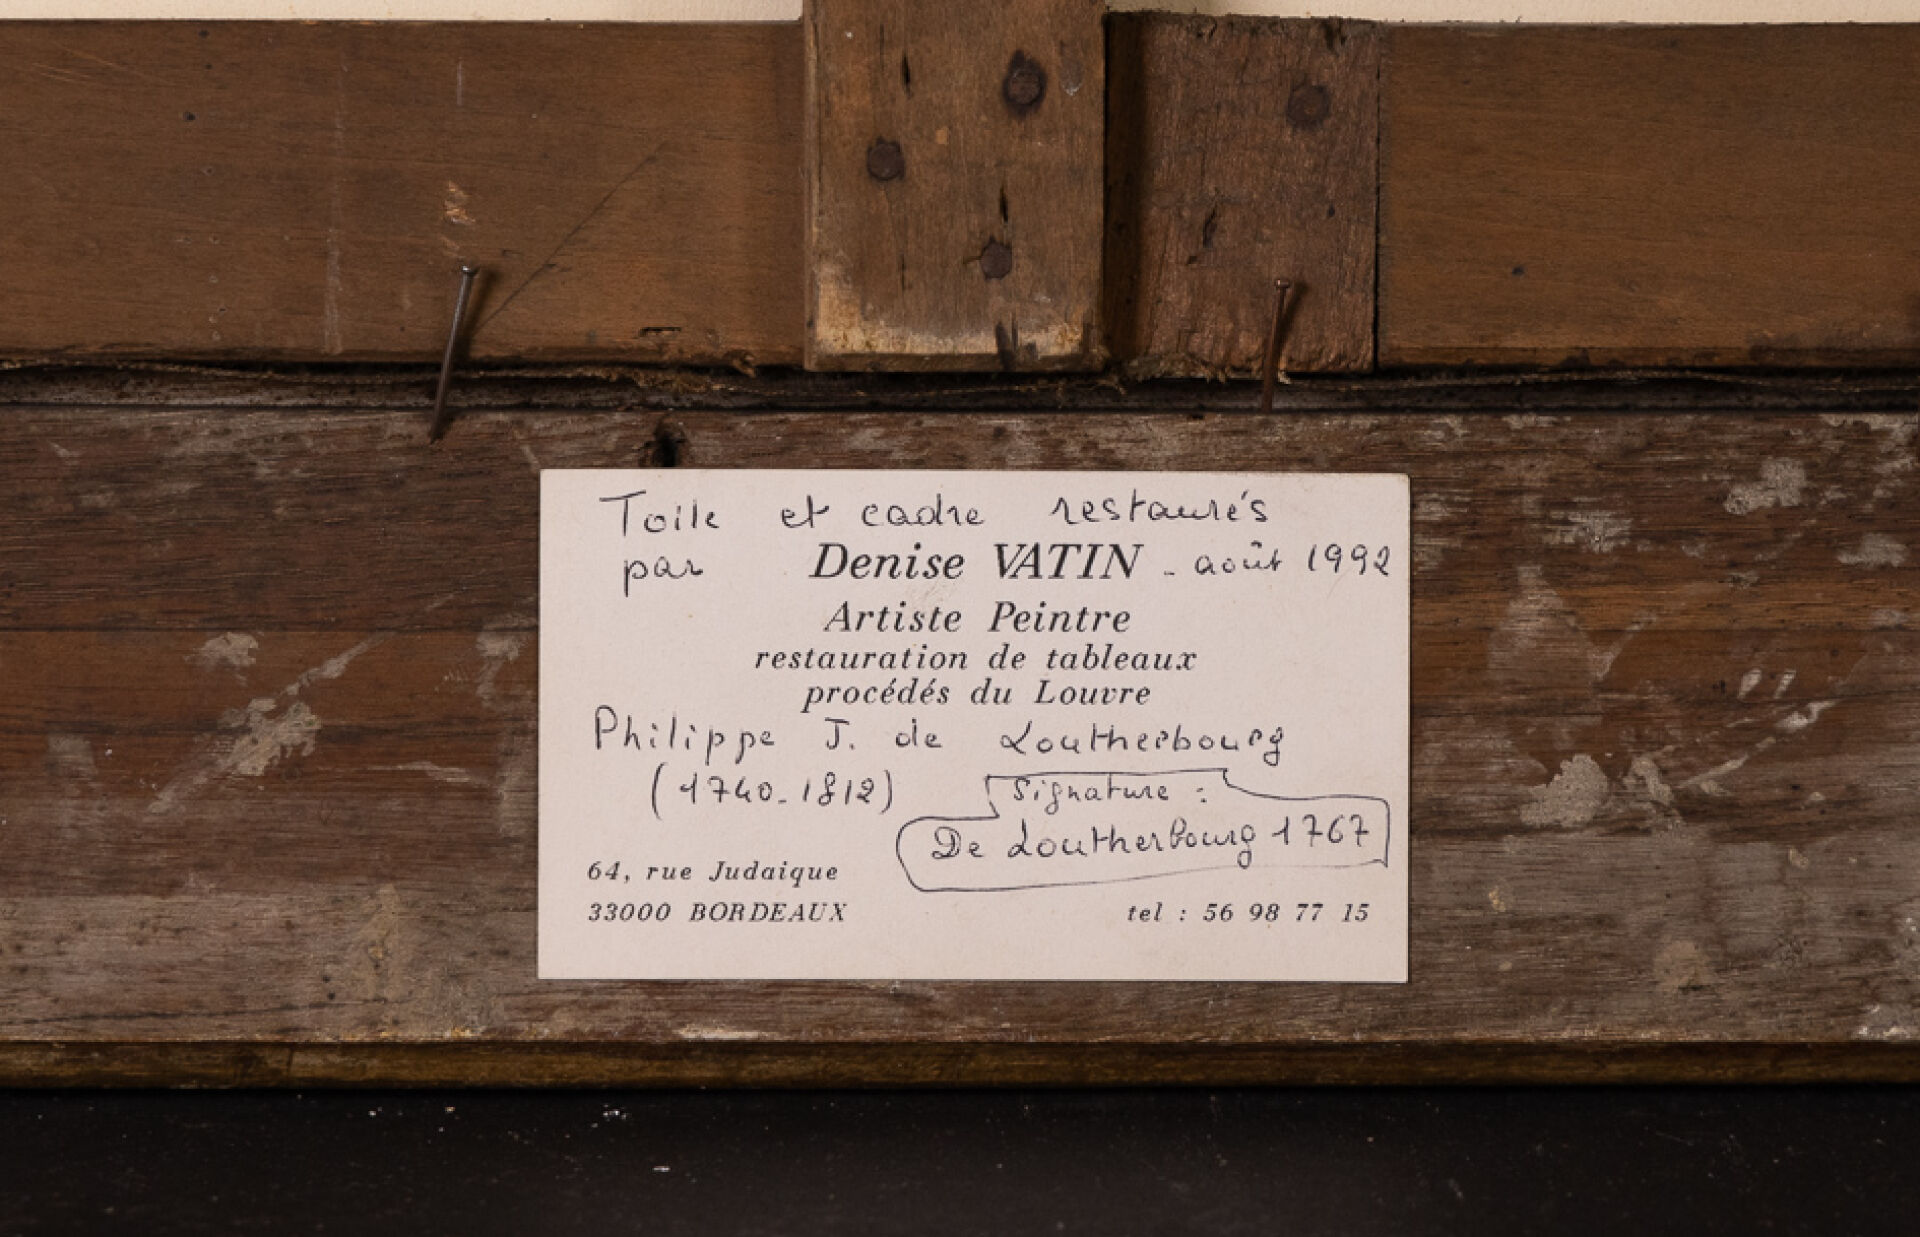 Toile et cadre restaurés
par Denise VATIN - août 1992
Artiste Peintre
restauration de tableaux
procédés du Louvre
Philippe J. de Loutherbourg
(1740-1812) Signature :
De Loutherbourg 1767
64, rue Judaique
33000 BORDEAUX tel : 56 98 77 15